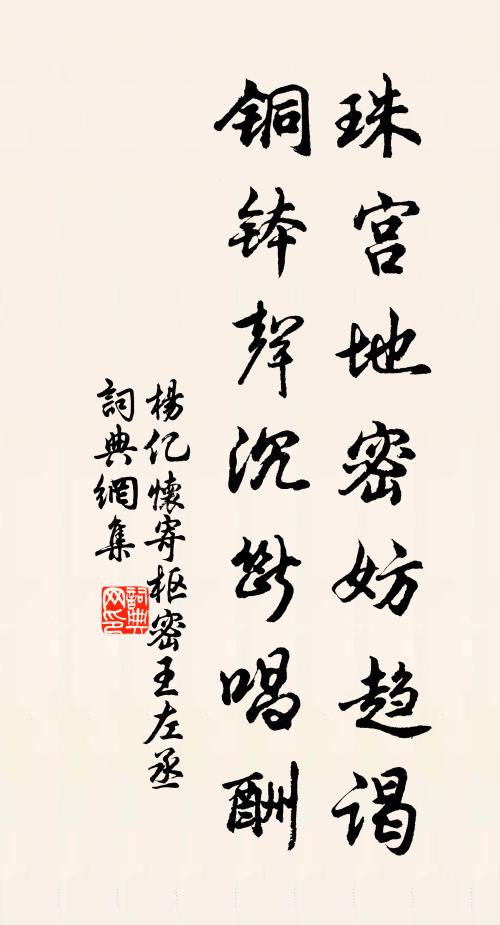 珠宫地密妨趋谒
铜钵聲沉断唱酬
楊亿懷寄枢密王左丞
詞典網集
詞典网印